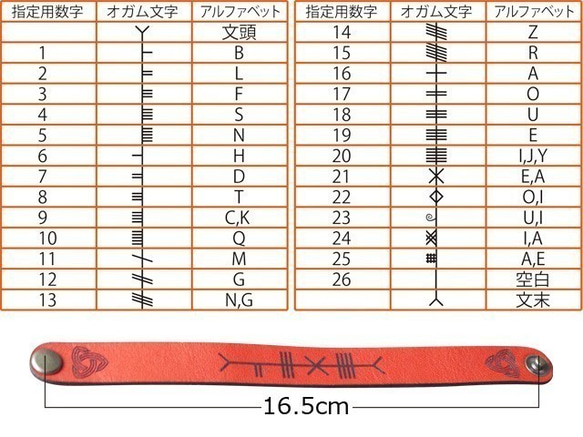 指定用数字 オガム文字 アルファベット
文頭
1 B
2 L
3 F
4 S
5 N
6 H
7 D
8 T
9 C,K
10 Q
11 M
12 G
13 N,G
指定用数字 オガム文字 アルファベット
14 Z
15 R
16 A
17 O
18 U
19 E
20 I,J,Y
21 E,A
22 O,I
23 U,I
24 I,A
25 A,E
26 空白
文末
16.5cm